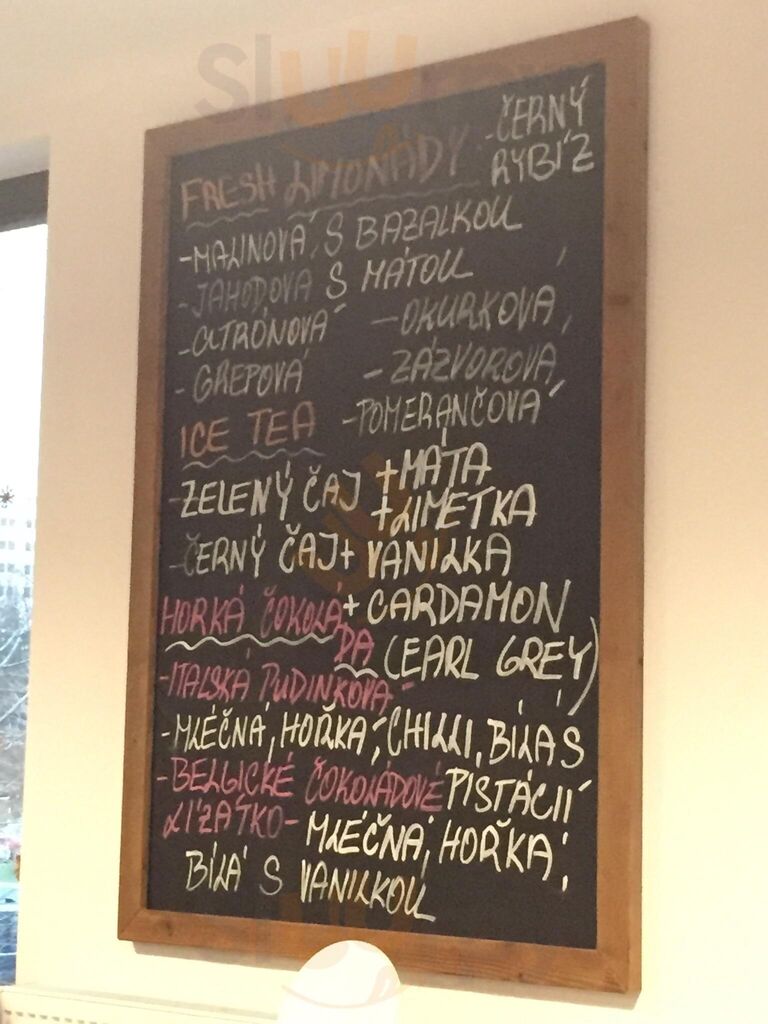 FRESH LIMONÁDY -ČERNÝ
RYBÍZ
-MALINOVÁ S BAZALKOU
-JAHODOVÁ S MÁTOU
-CITRÓNOVÁ -OKURKOVÁ
-GREPOVÁ -ZÁZVOROVÁ
ICE TEA -POMERANČOVÁ
-ZELENÝ ČAJ +MÁTA
+LIMETKA
-ČERNÝ ČAJ + VANILKA
HORKÁ ČOKOLÁ + CARDAMON
DA (EARL GREY)
-ITALSKÁ PUDINKOVÁ
-MLÉČNÁ, HOŘKÁ, CHILLI, BÍLÁ S
-BELGICKÉ ČOKOLÁDOVÉ PISTÁCIÍ
LÍZÁTKO- MLÉČNÁ, HOŘKÁ,
BÍLÁ S VANILKOU